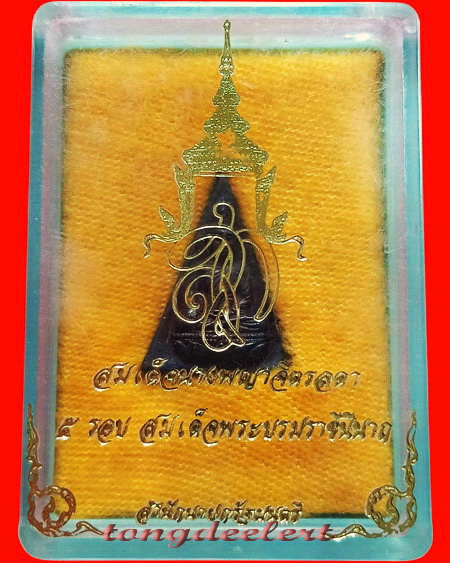 สก
สมเด็จนางพญาจิตรลดา
๕ รอบ สมเด็จพระบรมราชินีนาถ
สำนักนายกรัฐมนตรี
tongdeelert